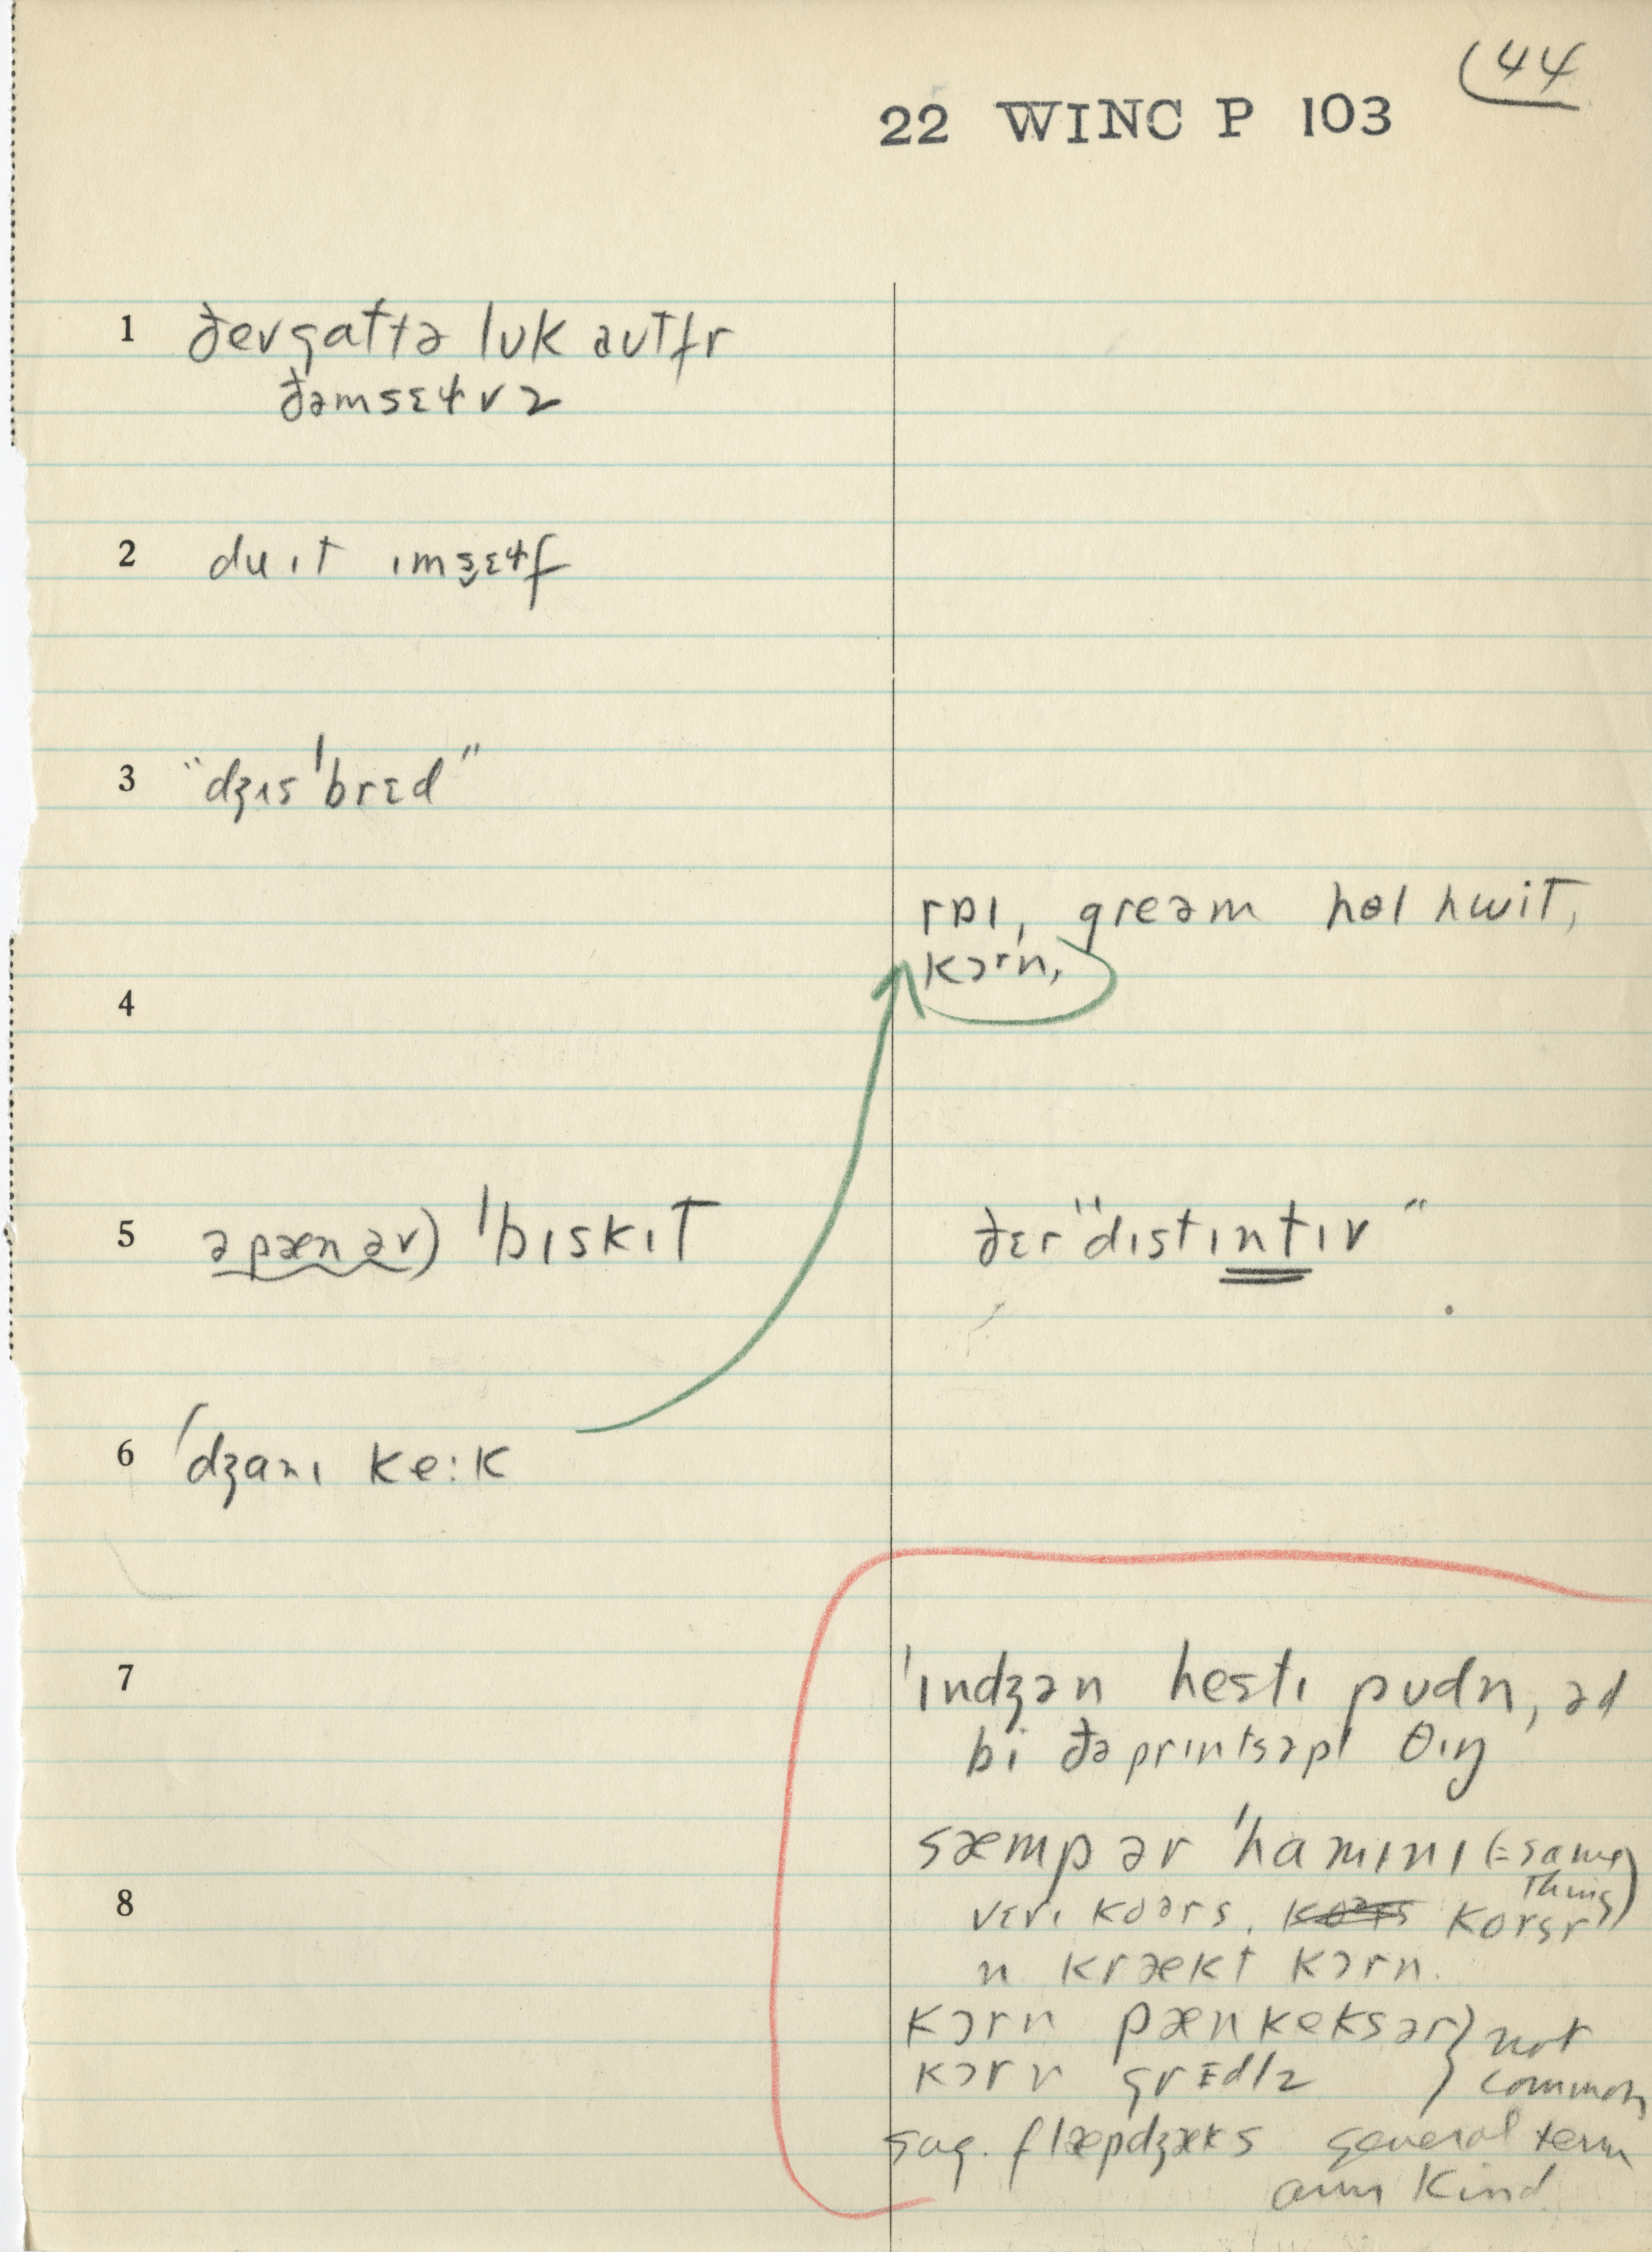 (44
22 WINC P 103
1 ðevgattə lʊk aʊtfr
ðəmsɛɫvz
2 du ɪt ɪmsɛɫf
3 "dʒɪs ˈbrɛd"
rɒɪ, greəm hɵl hwit,
kɔrn,
4
5 ə pæn əv) ˈbɪskɪt ðɛr "dɪstɪntɪv"
6 ˈdʒanɪ ke:k
7 ˈɪndʒən hestɪ pʊdn, əd
bi ðə prɪntsəpl θɪŋ
sæmp ər ˈhamɪnɪ (= same
thing)
8 vɛrɪ koərs, korsr
n krækt kɔrn.
kɔrn pænkeks ər } not
kɔrn grɪdlz } common
sug. flæpdʒæks general term
any kind